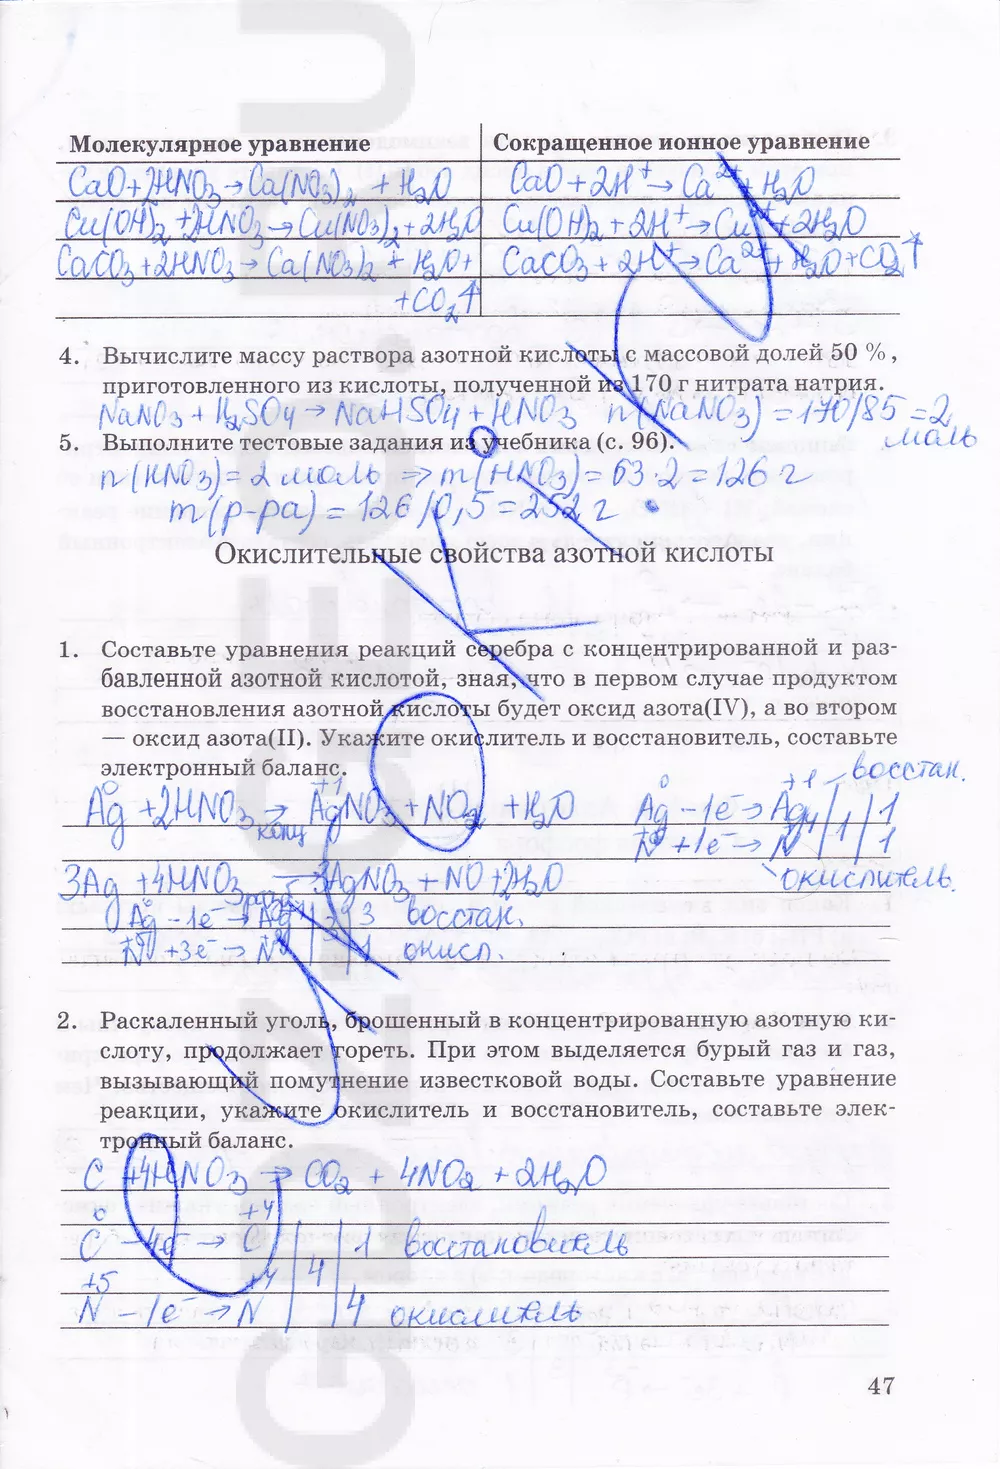 Молекулярное уравнение | Сокращенное ионное уравнение
CaO+2HNO₃→Ca(NO₃)₂ + H₂O | CaO + 2H⁺→ Ca²⁺ + H₂O
Cu(OH)₂+2HNO₃→Cu(NO₃)₂+2H₂O | Cu(OH)₂ + 2H⁺→Cu²⁺+2H₂O
CaCO₃+2HNO₃→Ca(NO₃)₂ + H₂O+ | CaCO₃ + 2H⁺→Ca²⁺+ H₂O+CO₂↑
+CO₂↑
4. Вычислите массу раствора азотной кислоты с массовой долей 50 %,
приготовленного из кислоты, полученной из 170 г нитрата натрия.
NaNO₃ + H₂SO₄ → NaHSO₄ + HNO₃ n(NaNO₃) = 170/85 = 2
моль
5. Выполните тестовые задания из учебника (с. 96).
n(HNO₃) = 2 моль ⇒ m(HNO₃) = 63·2 = 126 г
m(р-ра) = 126/0,5 = 252 г.
Окислительные свойства азотной кислоты
1. Составьте уравнения реакций серебра с концентрированной и раз-
бавленной азотной кислотой, зная, что в первом случае продуктом
восстановления азотной кислоты будет оксид азота(IV), а во втором
— оксид азота(II). Укажите окислитель и восстановитель, составьте
электронный баланс.
Ag⁰ +2HNO₃ конц → Ag⁺¹NO₃ + NO₂ + H₂O Ag⁰ −1e⁻→ Ag⁺¹ | 1 | 1 восстан.
N⁺⁵ +1e⁻→ N⁺⁴ | 1 окислитель.
3Ag +4HNO₃ разб → 3AgNO₃ + NO +2H₂O
Ag⁰ −1e⁻→ Ag⁺¹ | 3 | 3 восстан.
N⁺⁵ +3e⁻→ N⁺² | 1 окисл.
2. Раскаленный уголь, брошенный в концентрированную азотную ки-
слоту, продолжает гореть. При этом выделяется бурый газ и газ,
вызывающий помутнение известковой воды. Составьте уравнение
реакции, укажите окислитель и восстановитель, составьте элек-
тронный баланс.
C +4HNO₃ → CO₂ + 4NO₂ + 2H₂O
C⁰ −4e → C⁺⁴ | 4 | 1 восстановитель
N⁺⁵ −1e⁻→ N⁺⁴ | 4 окислитель
47
GDZGEO.RU